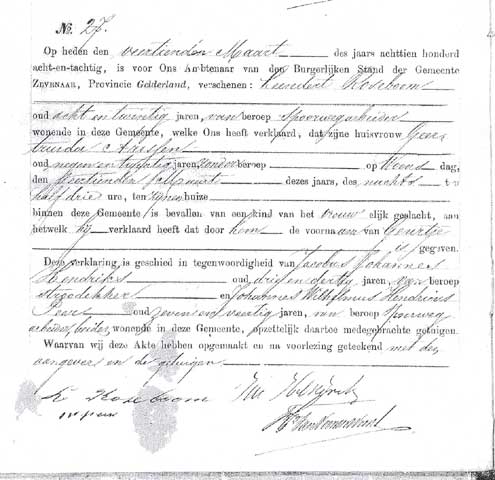 No. 27.
Op heden den veertienden Maart des jaars achttien honderd
acht-en-tachtig, is voor Ons Ambtenaar van den Burgerlijken Stand der Gemeente
ZEVENAAR, Provincie Gelderland, verschenen: Leendert Roseboom
oud acht en twintig jaren, van beroep Spoorwegarbeider
wonende in deze Gemeente, welke Ons heeft verklaard, dat zijne huisvrouw Geer
truida
oud negen en twintig jaren, zonder beroep op Woens dag,
den veertienden Maart dezes jaars, des nachts te
half drie ure, ten zijnen huize
binnen deze Gemeente is bevallen van een kind van het vrouw elijk geslacht, aan
hetwelk hij verklaard heeft dat door hem de voorna am van Geurtje
is gegeven.
Deze verklaring is geschied in tegenwoordigheid van Jacobus Johannes
Hendriks oud drie en dertig jaren, van beroep
en Johannes Wilhelmus Hendricus
oud zeven en veertig jaren, van beroep Spoorweg
arbeider, beiden wonende in deze Gemeente, opzettelijk daartoe medegebrachte getuigen.
Waarvan wij deze Akte hebben opgemaakt en na voorlezing geteekend met den
aangever en de getuigen
L. Roseboom